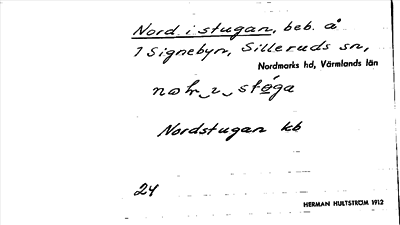 Nord i stugan, beb. å
1 Signebyn, Silleruds sn,
Nordmarks hd, Värmlands län
Nordstugan kb
24
HERMAN HULTSTRÖM 1912